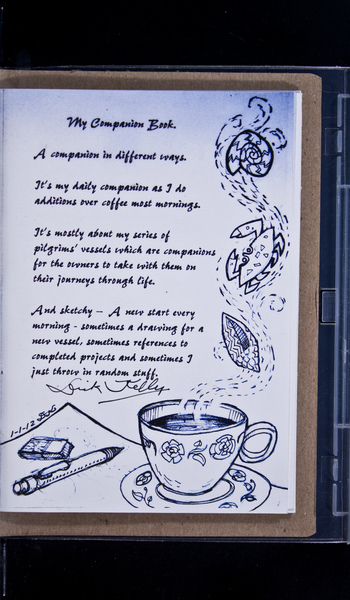 My Companion Book.
A companion in different ways.
It's my daily companion as I do
additions over coffee most mornings.
It's mostly about my series of
pilgrims' vessels which are companions
for the owners to take with them on
their journeys through life.
And sketchy – A new start every
morning - sometimes a drawing for a
new vessel, sometimes references to
completed projects and sometimes I
just throw in random stuff.
Dick Kelly
1-1-12